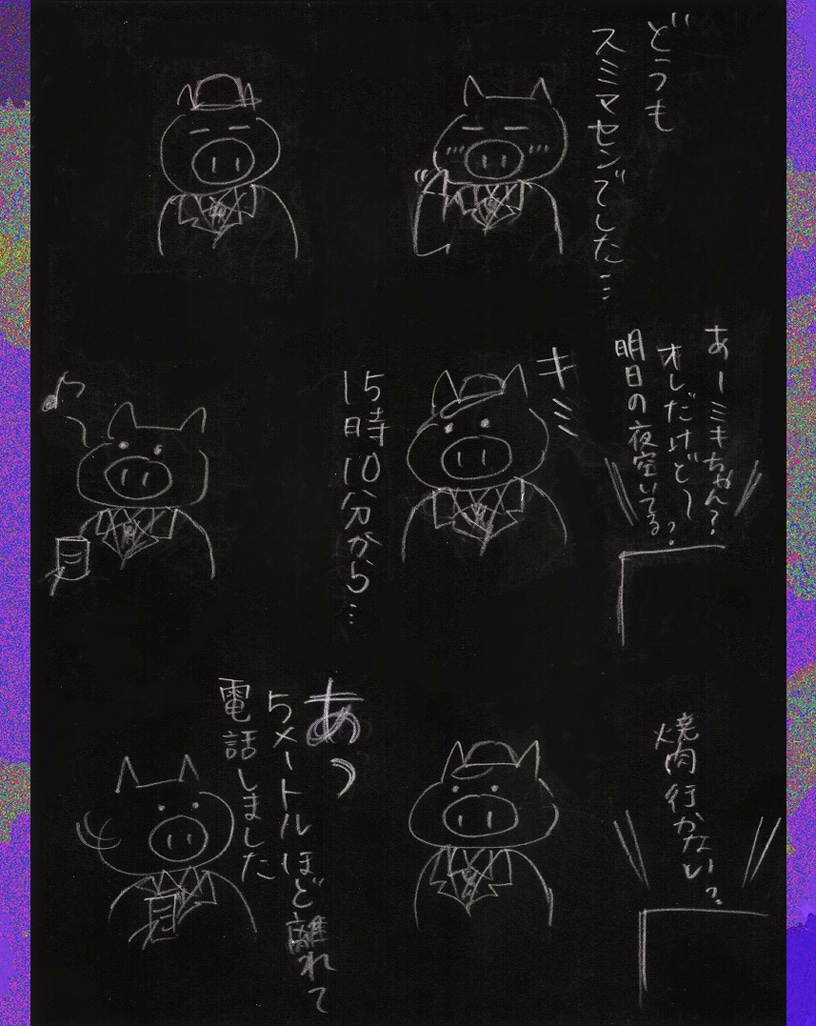 どうも
スミマセンでした…
あーミキちゃん?
オレだけど〜
明日の夜空いてる?
キミ
15時10分から…
焼肉行かない?
あっ
5メートルほど離れて
電話しました